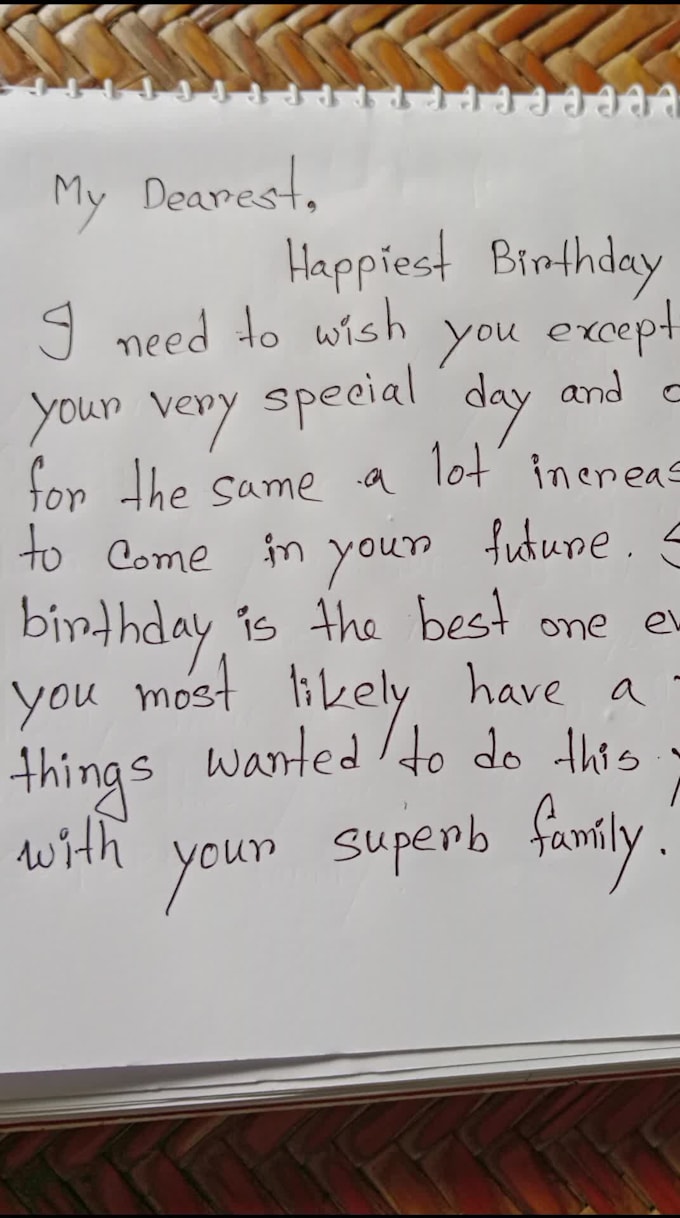 My Dearest,
Happiest Birthday
I need to wish you except
your very special day and
for the same a lot increas
to come in your future.
birthday is the best one ev
you most likely have a
things wanted to do this
with your superb family.